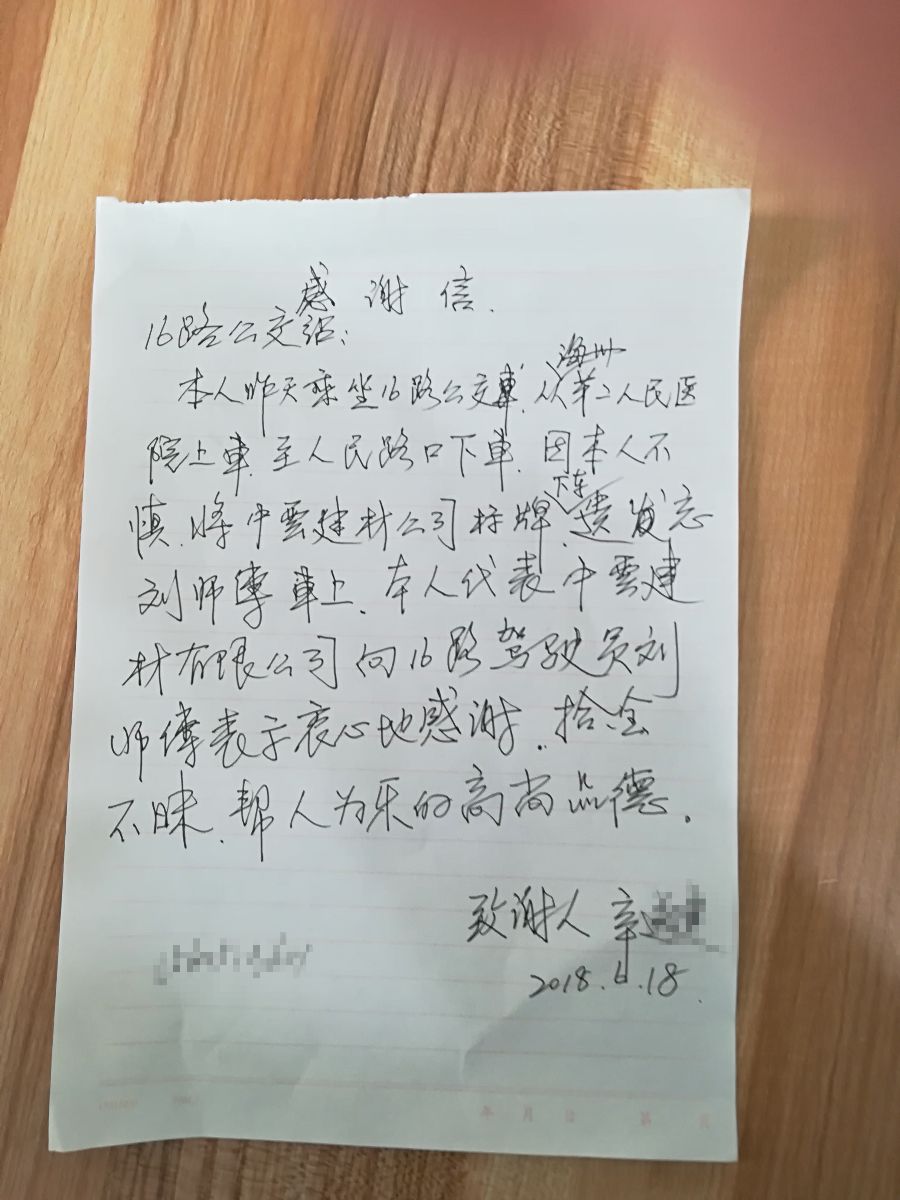 感谢信.
16路公交组:
海州
本人昨天乘坐16路公交車.从第二人民医
院上車.至人民路口下車.因本人不
下车
慎.将中雲建材公司标牌.遗忘
刘师傅車上.本人代表中雲建
材有限公司向16路驾驶员刘
师傅表示衷心地感谢.拾金
不昧.帮人为乐的高尚品德.
致谢人 辛
2018.6.18.
年 月 日 第 页